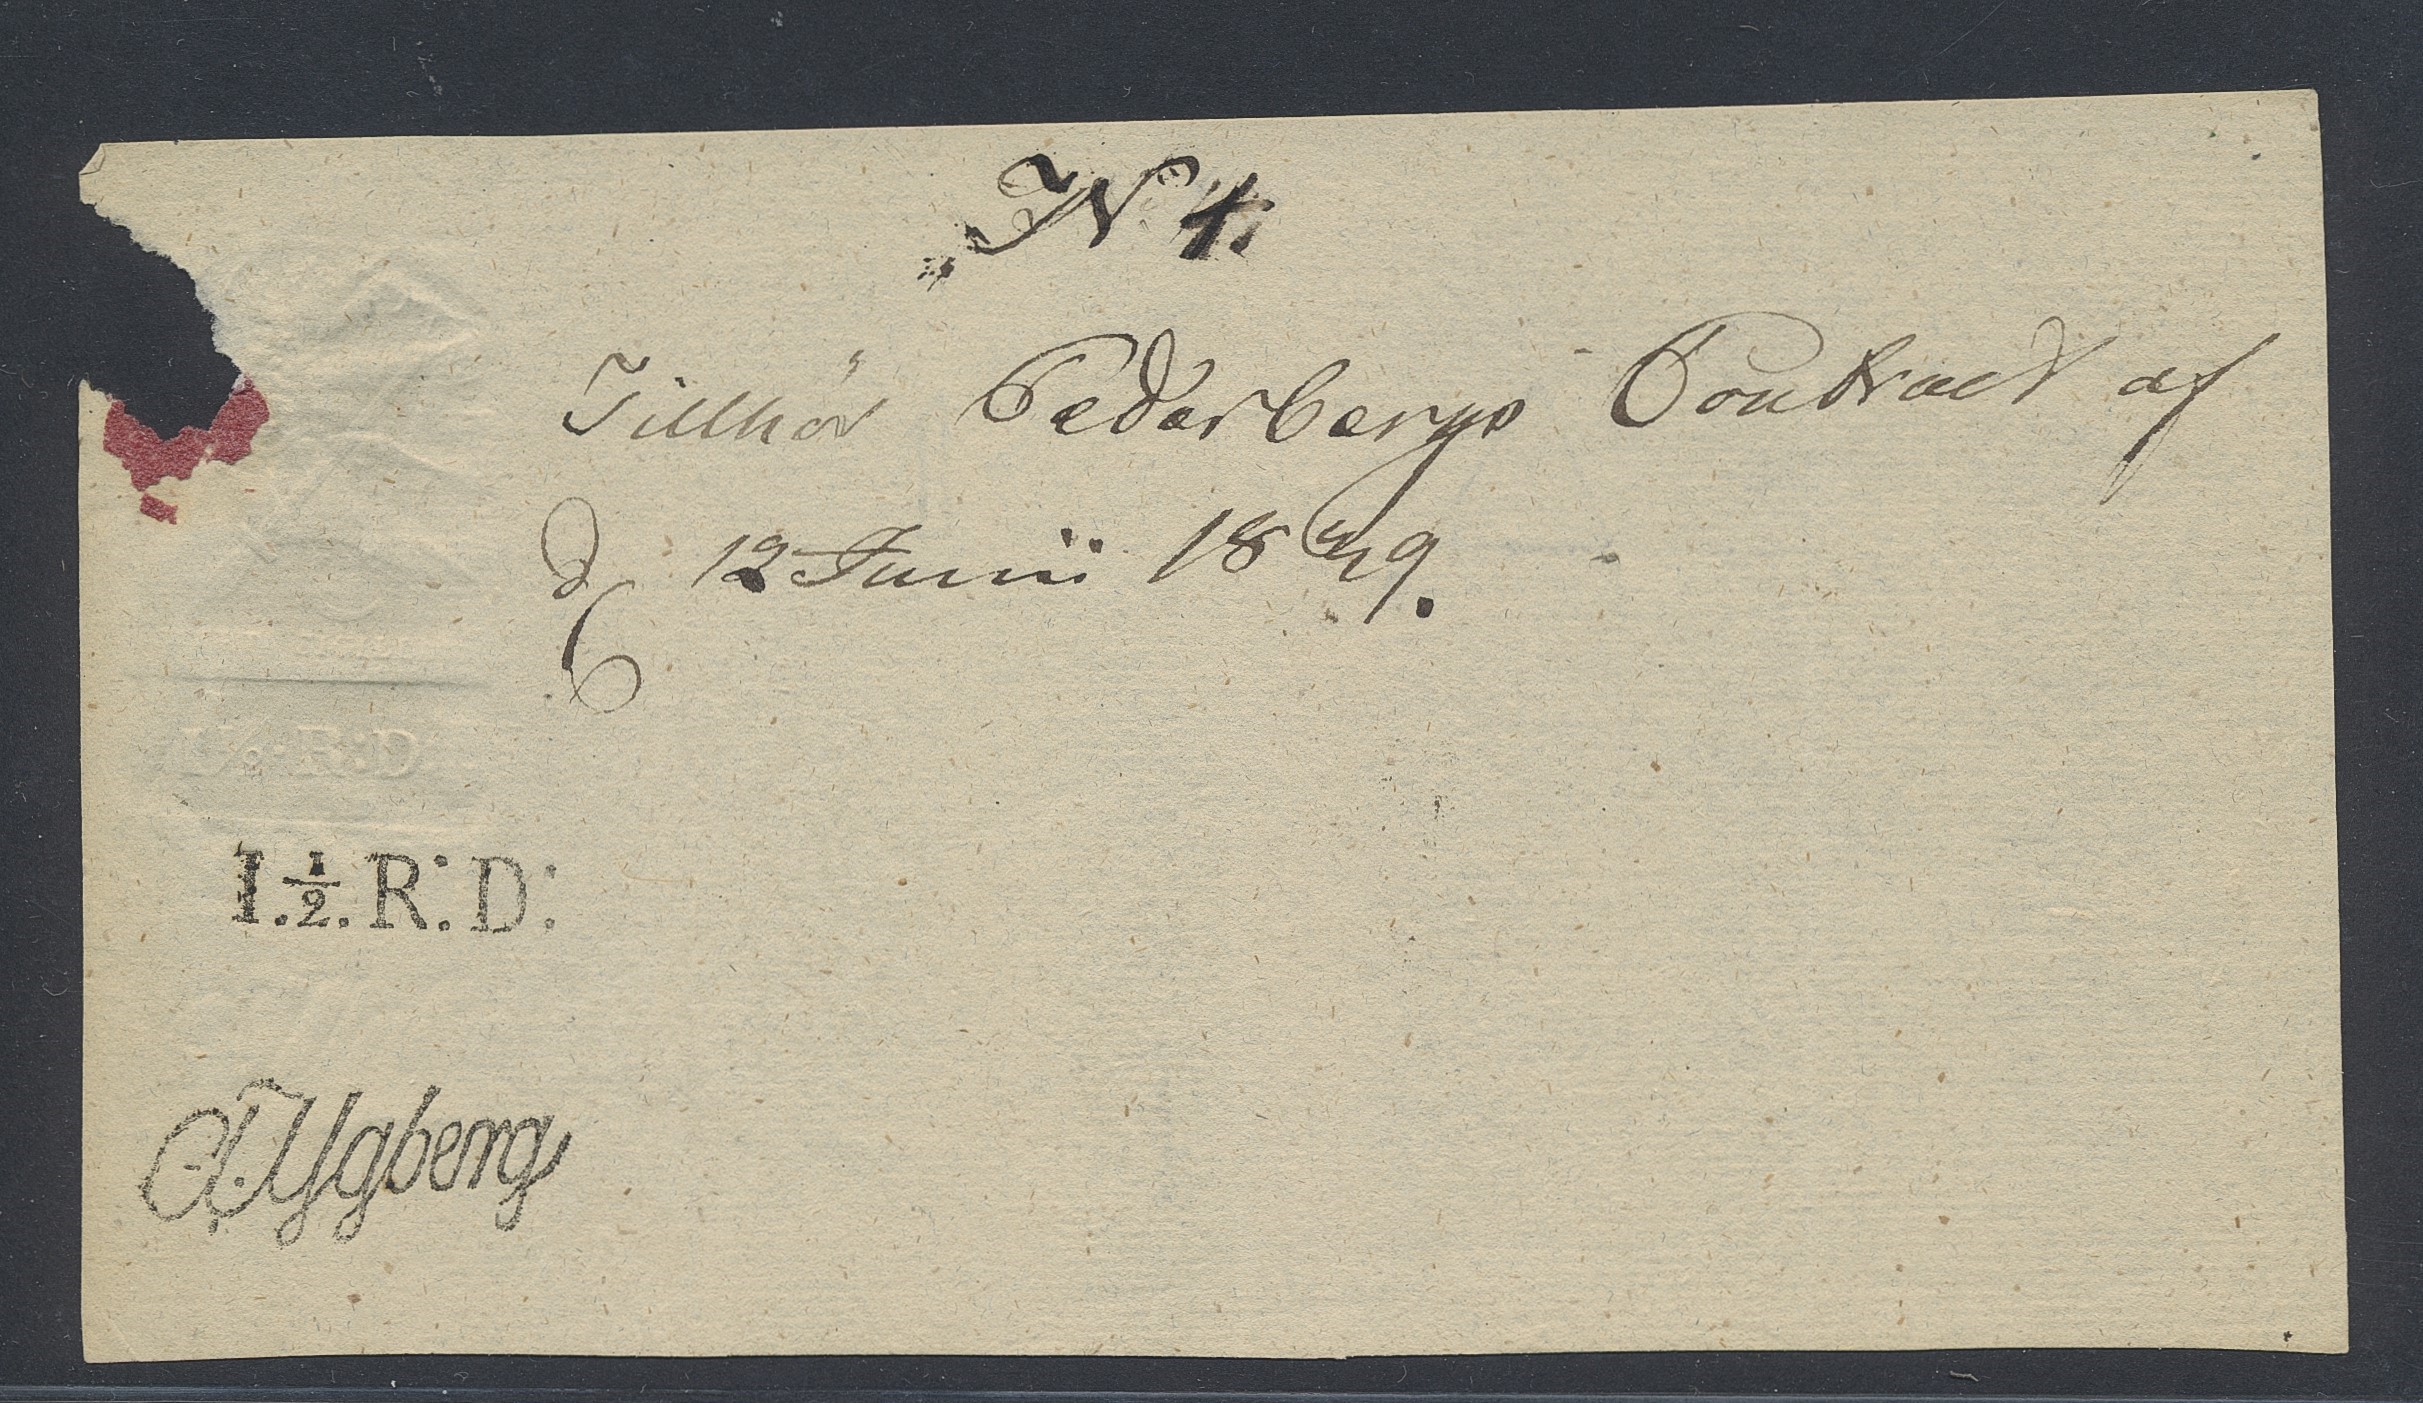 N 4.
Tillhör Cederbergs Contract af
d 12 Junii 1849.
1½.R:D
I.½.R:D:
Ygberg